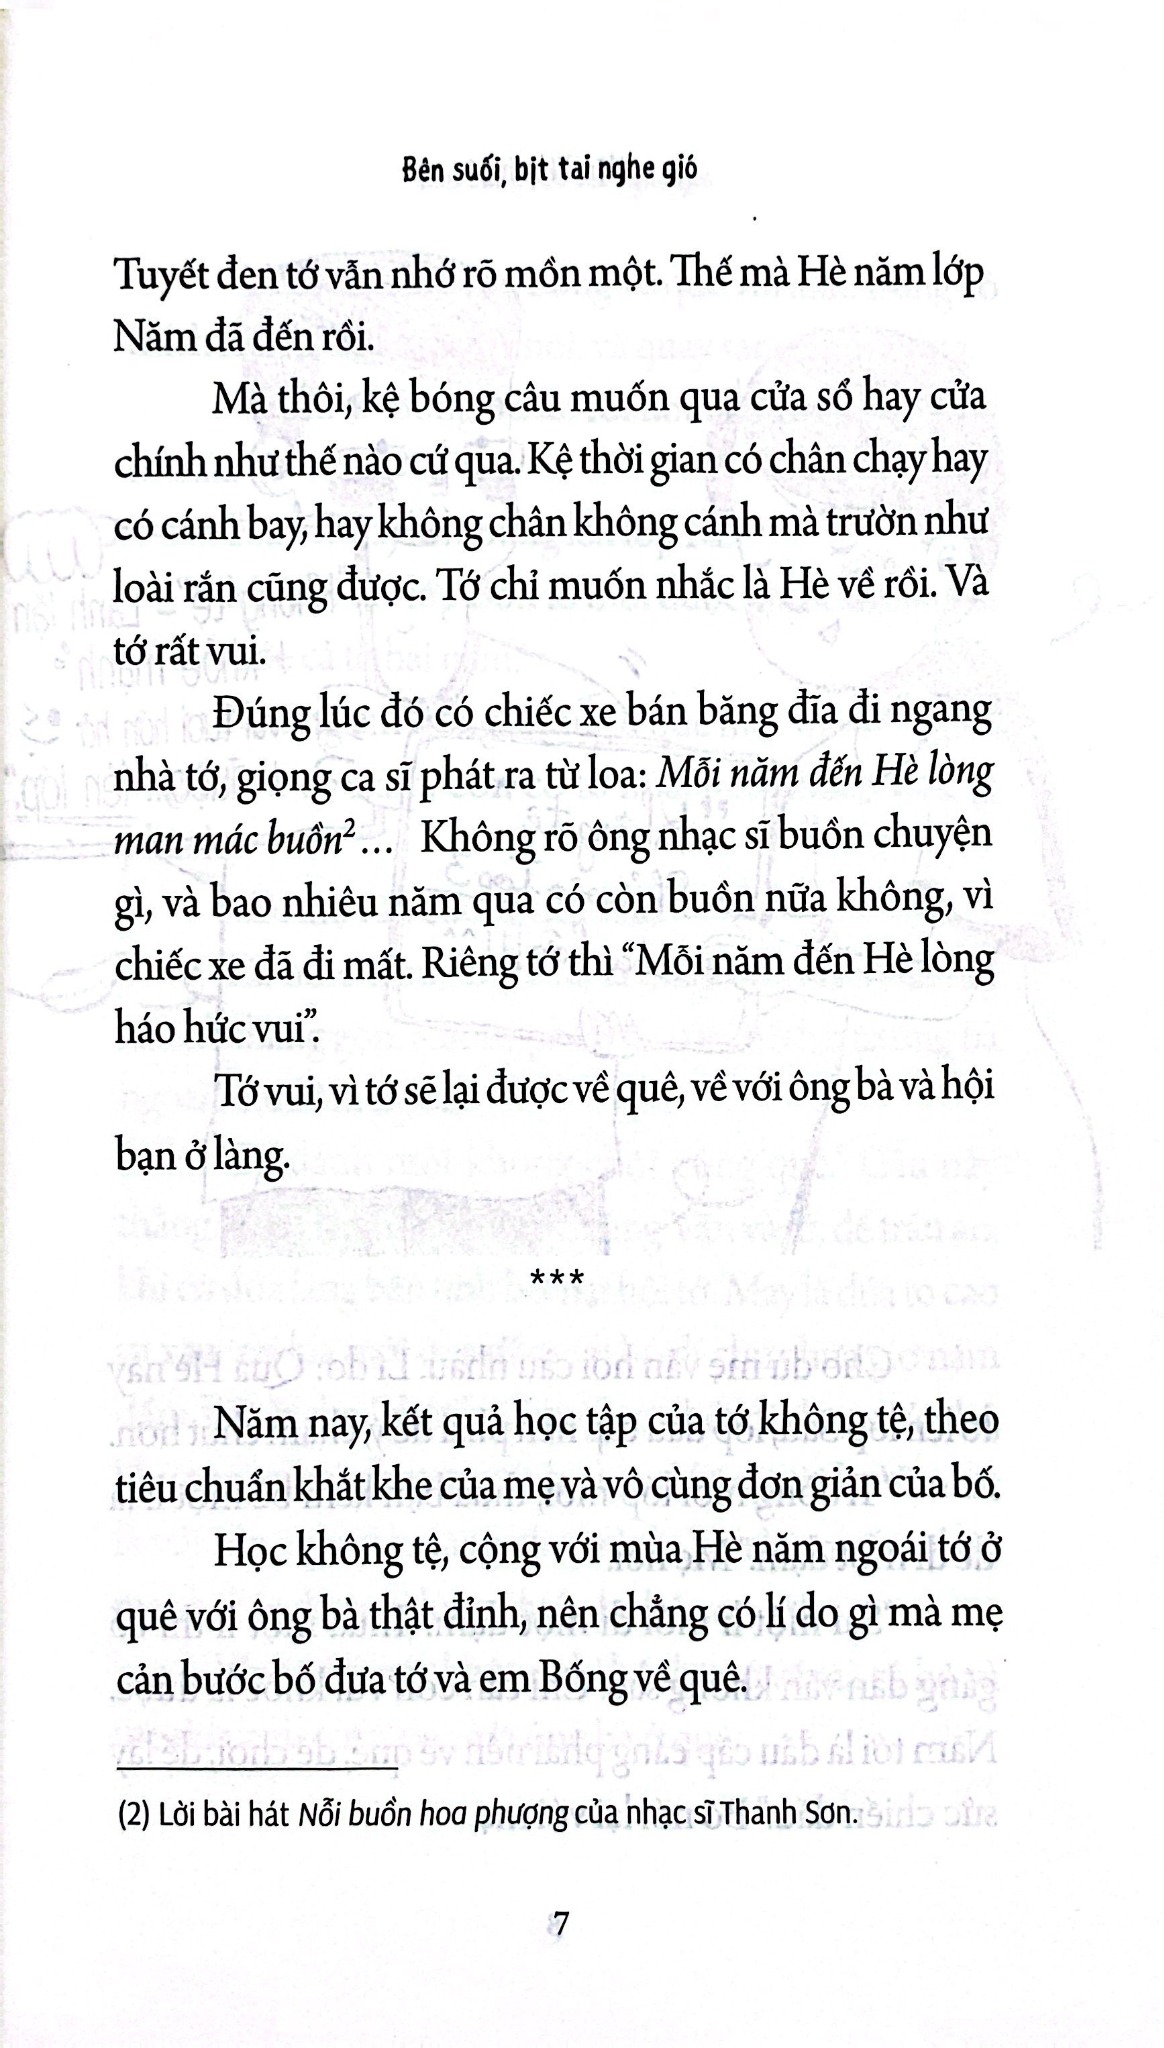 Bên suối, bịt tai nghe gió
Tuyết đen tớ vẫn nhớ rõ mồn một. Thế mà Hè năm lớp
Năm đã đến rồi.
Mà thôi, kệ bóng câu muốn qua cửa sổ hay cửa
chính như thế nào cứ qua. Kệ thời gian có chân chạy hay
có cánh bay, hay không chân không cánh mà trườn như
loài rắn cũng được. Tớ chỉ muốn nhắc là Hè về rồi. Và
tớ rất vui.
Đúng lúc đó có chiếc xe bán băng đĩa đi ngang
nhà tớ, giọng ca sĩ phát ra từ loa: Mỗi năm đến Hè lòng
man mác buồn²... Không rõ ông nhạc sĩ buồn chuyện
gì, và bao nhiêu năm qua có còn buồn nữa không, vì
chiếc xe đã đi mất. Riêng tớ thì “Mỗi năm đến Hè lòng
háo hức vui”.
Tớ vui, vì tớ sẽ lại được về quê, về với ông bà và hội
bạn ở làng.
***
Năm nay, kết quả học tập của tớ không tệ, theo
tiêu chuẩn khắt khe của mẹ và vô cùng đơn giản của bố.
Học không tệ, cộng với mùa Hè năm ngoái tớ ở
quê với ông bà thật đỉnh, nên chẳng có lí do gì mà mẹ
cản bước bố đưa tớ và em Bống về quê.
(2) Lời bài hát Nỗi buồn hoa phượng của nhạc sĩ Thanh Sơn.
7